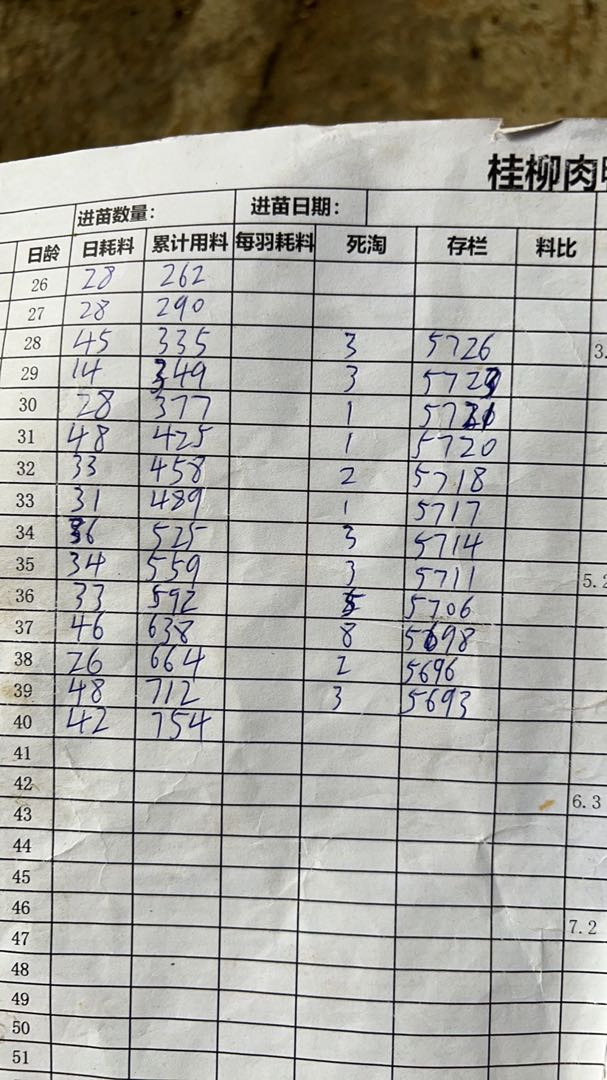 桂柳肉
进苗数量： 进苗日期：
日龄 日耗料 累计用料 每羽耗料 死淘 存栏 料比
26 28 262
27 28 290
28 45 335 3 5726 3.
29 14 349 3 5723
30 28 377 1 5721
31 48 425 1 5720
32 33 458 2 5718
33 31 489 1 5717
34 36 525 3 5714
35 34 559 3 5711 5.2
36 33 592 5 5706
37 46 638 8 5698
38 26 664 2 5696
39 48 712 3 5693
40 42 754
41
42
43 6.3
44
45
46
47 7.2
48
49
50
51